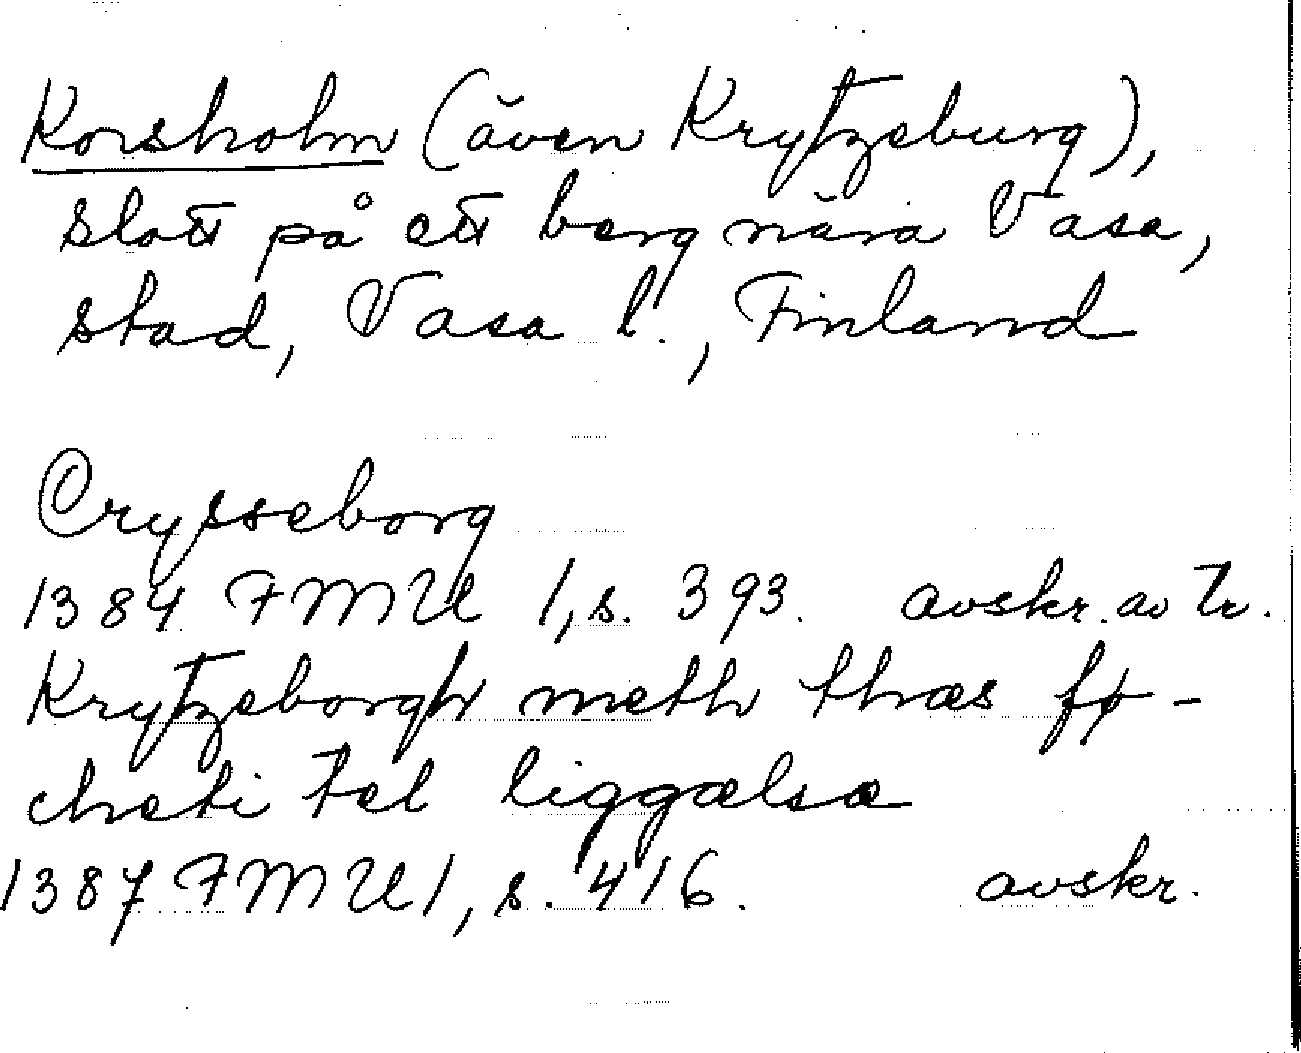 Korsholm (även Krytzeburg),
slott på ett berg nära Vasa,
stad, Vasa l., Finland
Crysseborg
1384 FMU 1, s. 393. avskr. av Tr.
Krytzeborgh meth thæs fø-
cheti tel liggælsæ
1387 FMU 1, s. 416. avskr.